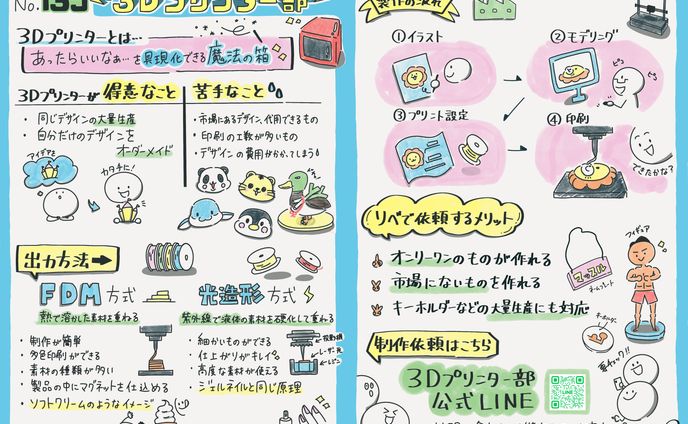 No.135
3Dプリンター部
3Dプリンターとは…
あったらいいなぁ…を具現化できる魔法の箱
3Dプリンターが得意なこと
・同じデザインの大量生産
・自分だけのデザインを
オーダーメイド
アイデアを
カタチに!
苦手なこと
・市場にあるデザイン、代用できるもの
・印刷の工数が多いもの
・デザインの費用がかかってしまう
出力方法→
FDM方式
熱で溶かした素材を重ねる
・制作が簡単
・多色印刷ができる
・素材の種類が多い
・製品の中にマグネットを仕込める
・ソフトクリームのようなイメージ
光造形方式
紫外線で液体の素材を硬化して重ねる
・細かいものができる
・仕上がりがキレイ
・高度な素材が使える
・ジェルネイルと同じ原理
製作の流れ
①イラスト
②モデリング
③プリント設定
④印刷
できたかな?
リベで依頼するメリット
オンリーワンのものが作れる
市場にないものを作れる
キーホルダーなどの大量生産にも対応
フィギュア
ネームプレート
キーホルダー
制作依頼はこちら
3Dプリンター部
公式LINE
要チェック!!